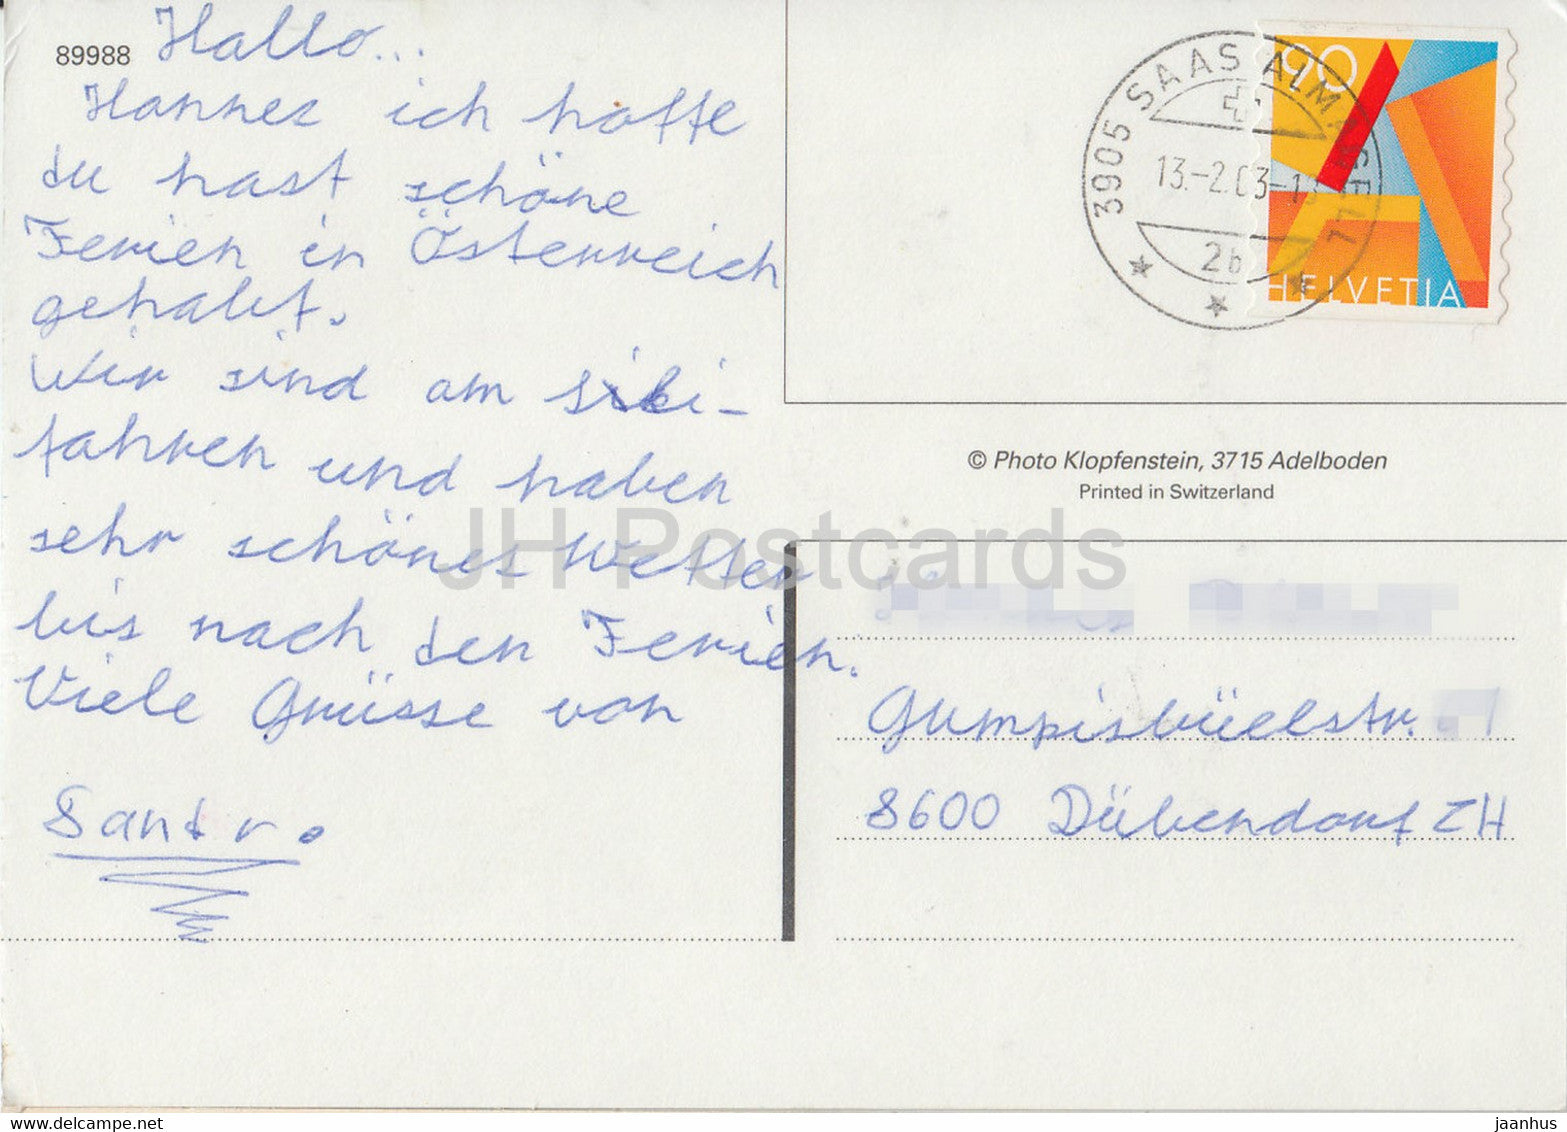 89988
Hallo...
Hannes ich hoffe
du hast schöne
Ferien in Österreich
gehabt.
Wir sind am ski-
fahren und haben
sehr schönes Wetter
bis nach den Ferien.
Viele Grüsse von
Sandro
3905 SAAS ALMAGELL
13.-2.03-1
2b
90
HELVETIA
© Photo Klopfenstein, 3715 Adelboden
Printed in Switzerland
JH Postcards
Gumpisbüelstr.
8600 Dübendorf ZH
www.delcampe.net
jaanhus